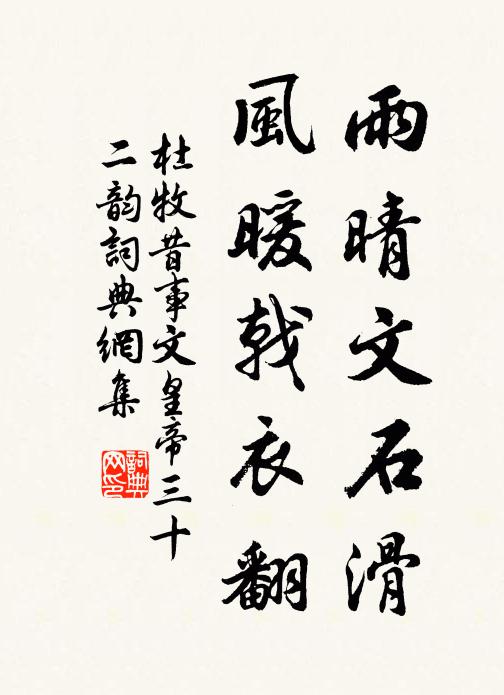 雨晴文石滑
風暖戟衣翻
杜牧昔事文皇帝三十
二韵詞典網集
詞典
网印